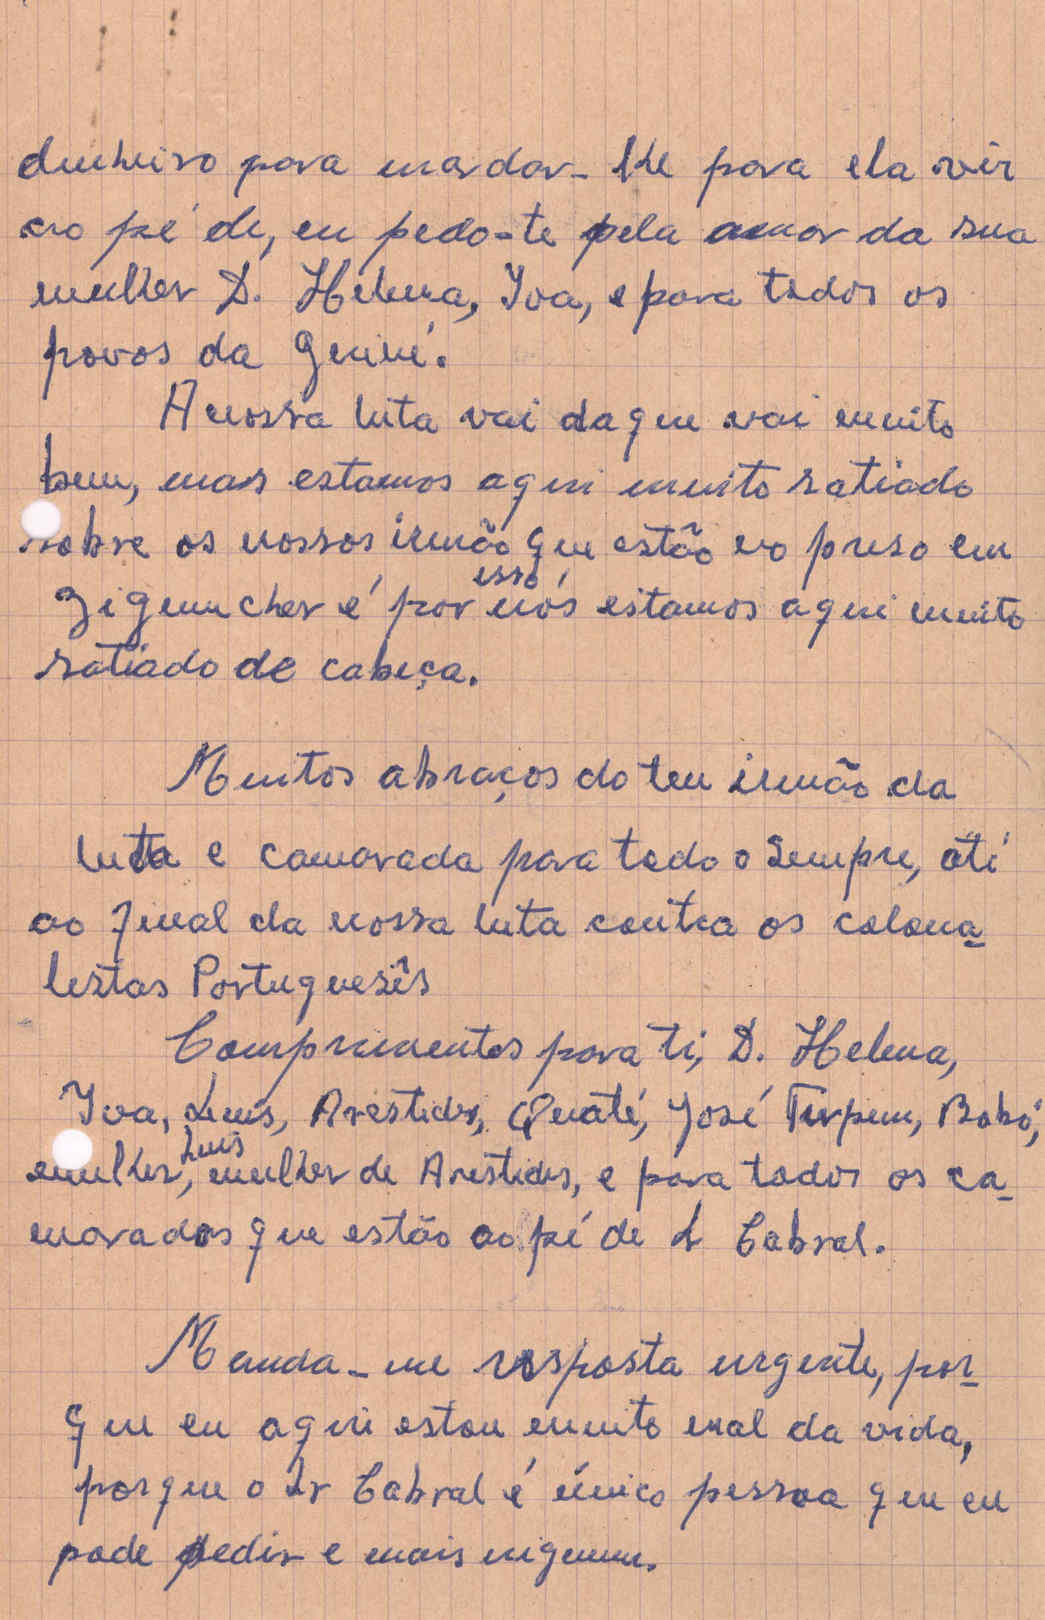 dinheiro para mandar-lhe para ela vir
ao pé de, eu pedo-te pela amor da sua
mulher D. Helena, Iva, e para todos os
povos da Guiné.
A nossa luta vai daqui vai muito
bem, mas estamos aqui muito ratiado
sobre os nossos irmão que estão no preso em
Ziguincher é por isso nós estamos aqui muito
ratiado de cabeça.
Muitos abraços do teu irmão da
luta e camarada para todo o sempre, até
ao final da nossa luta contra os colona-
lestas Portuguesês
Comprimentos para ti, D. Helena,
Iva, Luís, Arestides, Quaté, José Turpim, Bobó,
mulher Luís, mulher de Arestides, e para todos os ca-
maradas que estão ao pé de Sr Cabral.
Manda-me resposta urgente, por-
que eu aqui estou muito mal da vida,
porque o Sr Cabral é único pessoa que eu
pode pedir e mais niguem.